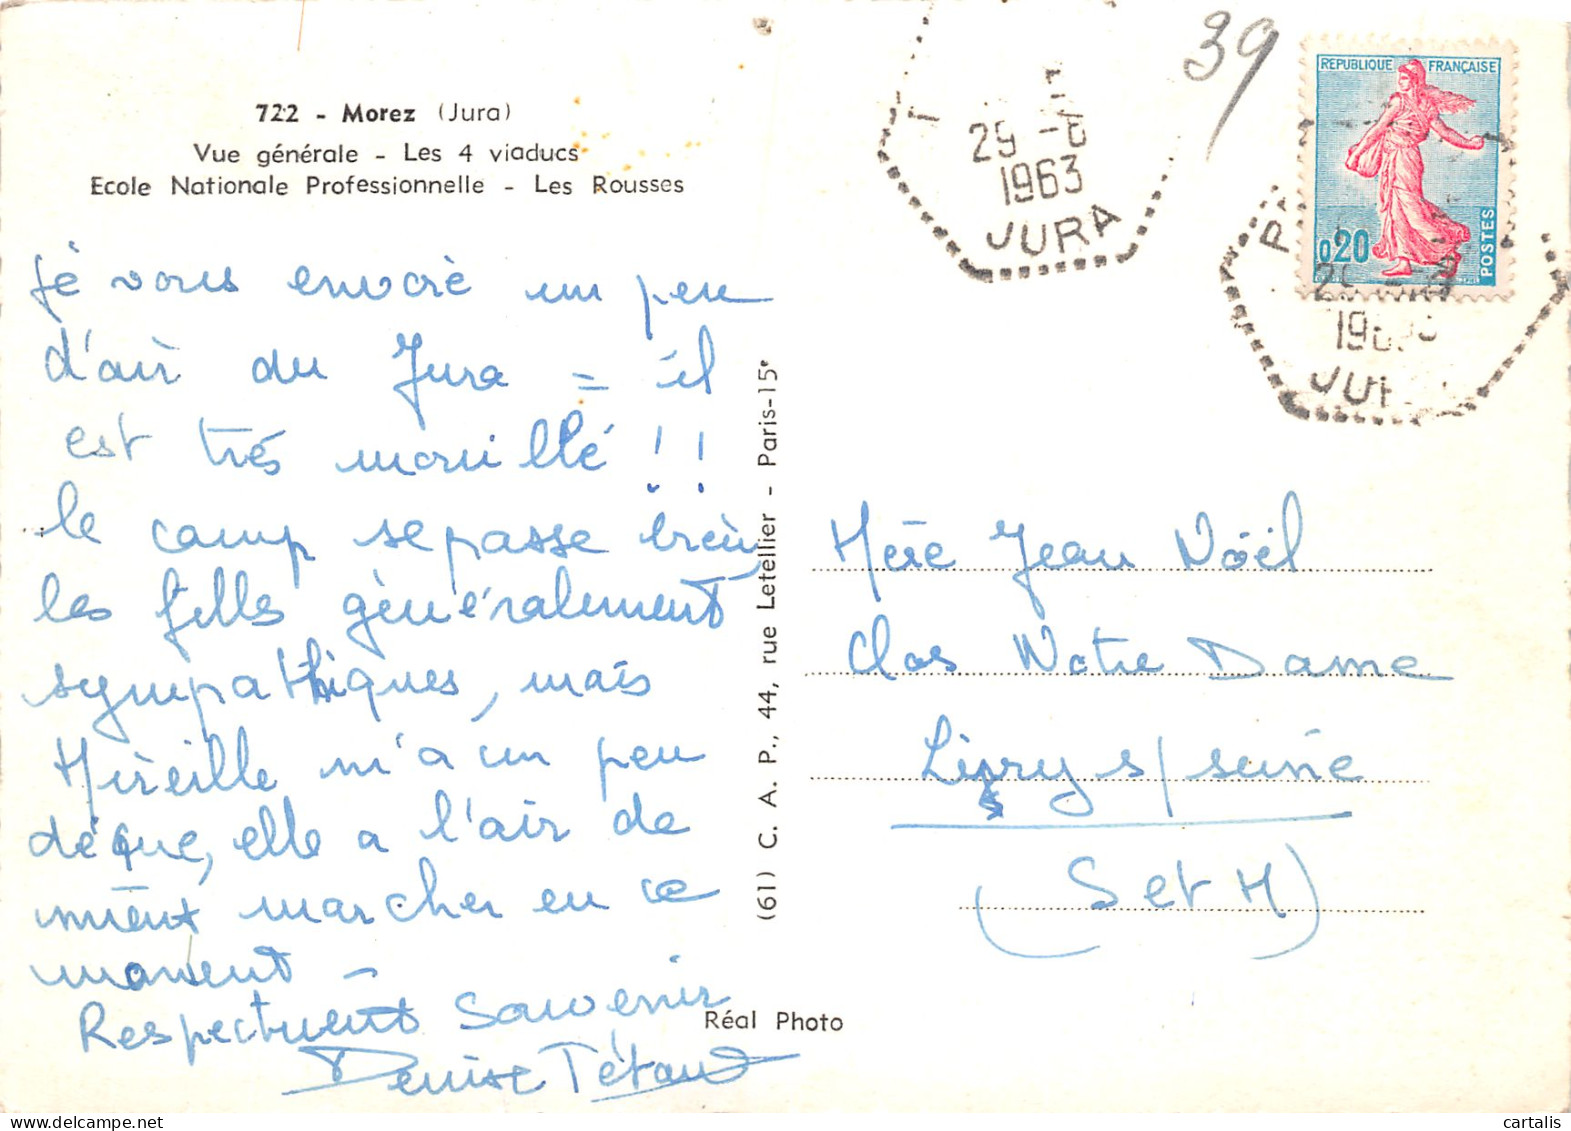 722 - Morez (Jura)
Vue générale - Les 4 viaducs
Ecole Nationale Professionnelle - Les Rousses
39
REPUBLIQUE FRANÇAISE
0,20
POSTES
1963
JURA
Je vous envoie un peu
d'air du Jura = il
est très mouillé !!
le camp se passe bien,
les filles généralement
sympathiques, mais
Mireille m'a un peu
déçue, elle a l'air de
mieux marcher en ce
moment -
Respectueux Souvenir
Denise Tétaud
(61) C. A. P., 44, rue Letellier - Paris-15e
Réal Photo
Mère Jean Noël
Clos Notre Dame
Livry s/ seine
(S et M)
cartalis
www.delcampe.net